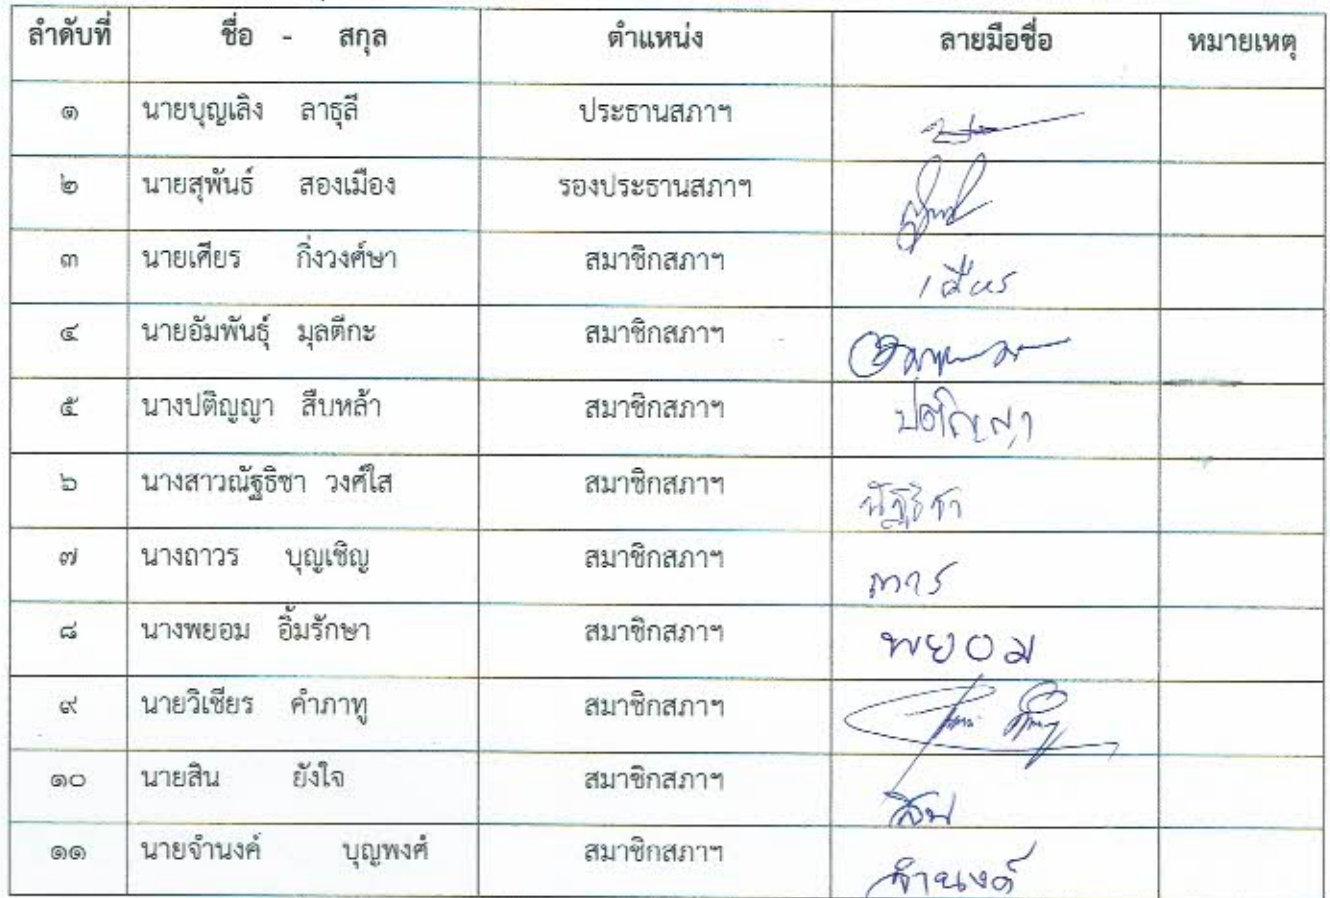 ลำดับที่ ชื่อ - สกุล ตำแหน่ง ลายมือชื่อ หมายเหตุ
๑ นายบุญเลิง ลาธุลี ประธานสภาฯ
๒ นายสุพันธ์ สองเมือง รองประธานสภาฯ
๓ นายเศียร กิ่งวงศ์ษา สมาชิกสภาฯ เศียร
๔ นายอัมพันธุ์ มุลตีกะ สมาชิกสภาฯ
๕ นางปติญญา สืบหล้า สมาชิกสภาฯ ปติญญา
๖ นางสาวณัฐธิชา วงศ์ใส สมาชิกสภาฯ ณัฐธิชา
๗ นางถาวร บุญเชิญ สมาชิกสภาฯ ถาวร
๘ นางพยอม อิ้มรักษา สมาชิกสภาฯ พยอม
๙ นายวิเชียร คำภาทู สมาชิกสภาฯ
๑๐ นายสิน ยังใจ สมาชิกสภาฯ สิน
๑๑ นายจำนงค์ บุญพงศ์ สมาชิกสภาฯ จำนงค์